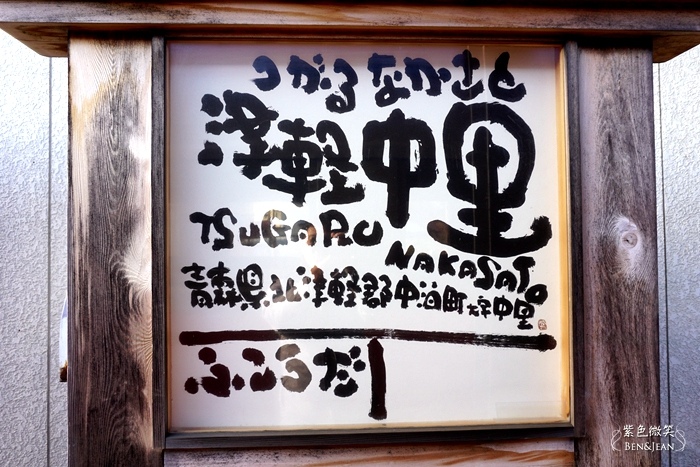 つがるなかさと
津軽中里
TSUGARU
NAKASATO
青森県北津軽郡中泊町大字中里
ふこうだ
紫色微笑
BEN&JEAN